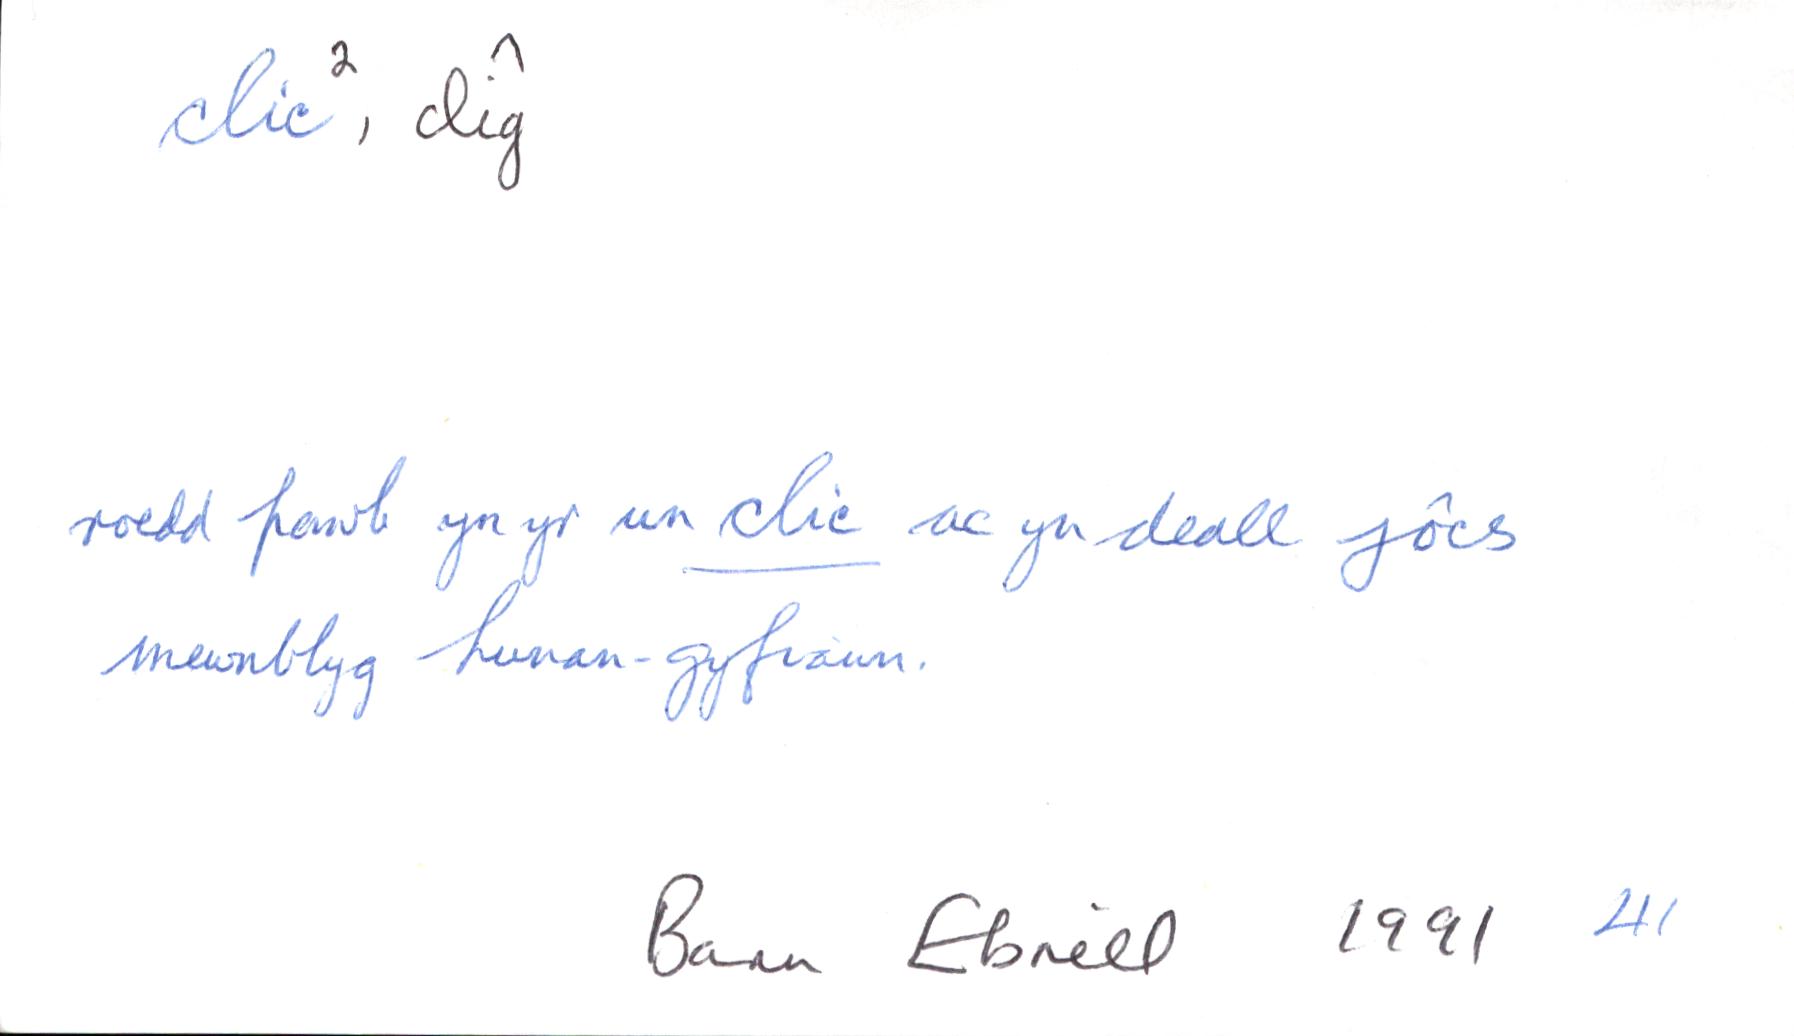 clic², clîg
roedd pawb yn yr un clic ac yn deall jôcs
mewnblyg hunan-gyfiawn.
Barn Ebrill 1991 41